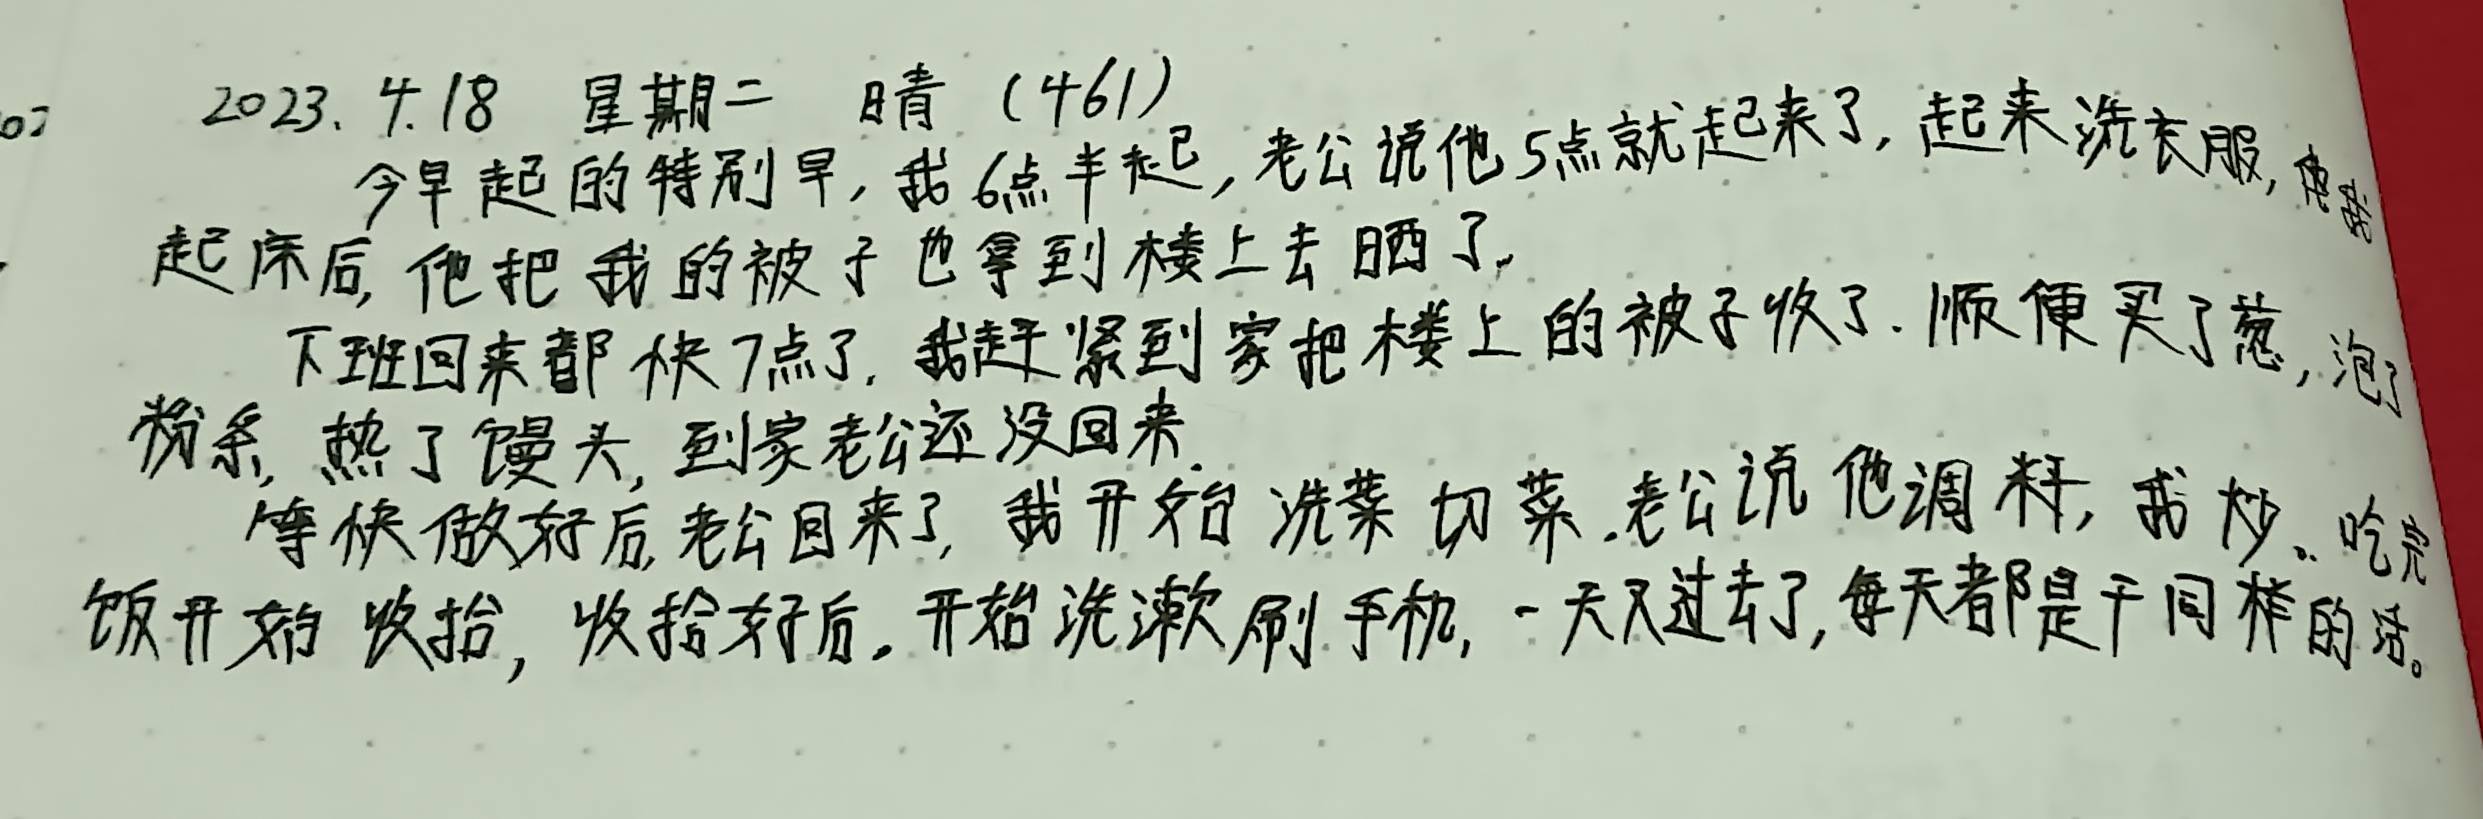 2023.4.18 星期二 晴（461）
今早起的特别早，我6点半起，老公说他5点就起来了，起来洗衣服，
起床后，他把我的被子也拿到楼上去晒了。
下班回来都快7点了，我赶紧到家把楼上的被子收了.顺便买了葱，泡了
粉条，热了馒头，到家老公还没回来.
等快做好后，老公回来了，我开始洗菜切菜.老公说他调料，我炒。吃完
饭开始收拾，收拾好后.开始洗漱刷手机，一天又过去了，每天都是干同样的活。